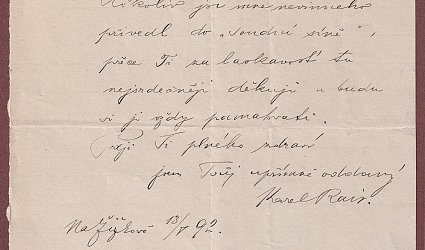 Ačkoliv jsi mne nevinného
přivedl do „soudní síně“,
přece Ti za laskavost tu
nejsrdečněji děkuji a budu
si ji vždy pamatovati.
Přeji Ti plného zdraví
jsem Tvůj upřímně oddaný
Karel Rais.
Na Žižkově 13/V 92.